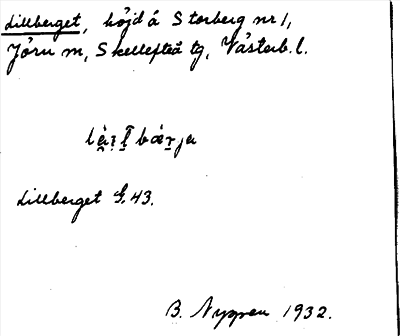 Lillberget, höjd å Storberg nr 1,
Jörn sn, Skellefteå tg, Västerb. l.
Lillberget G. 43.
B. Nygren 1932.